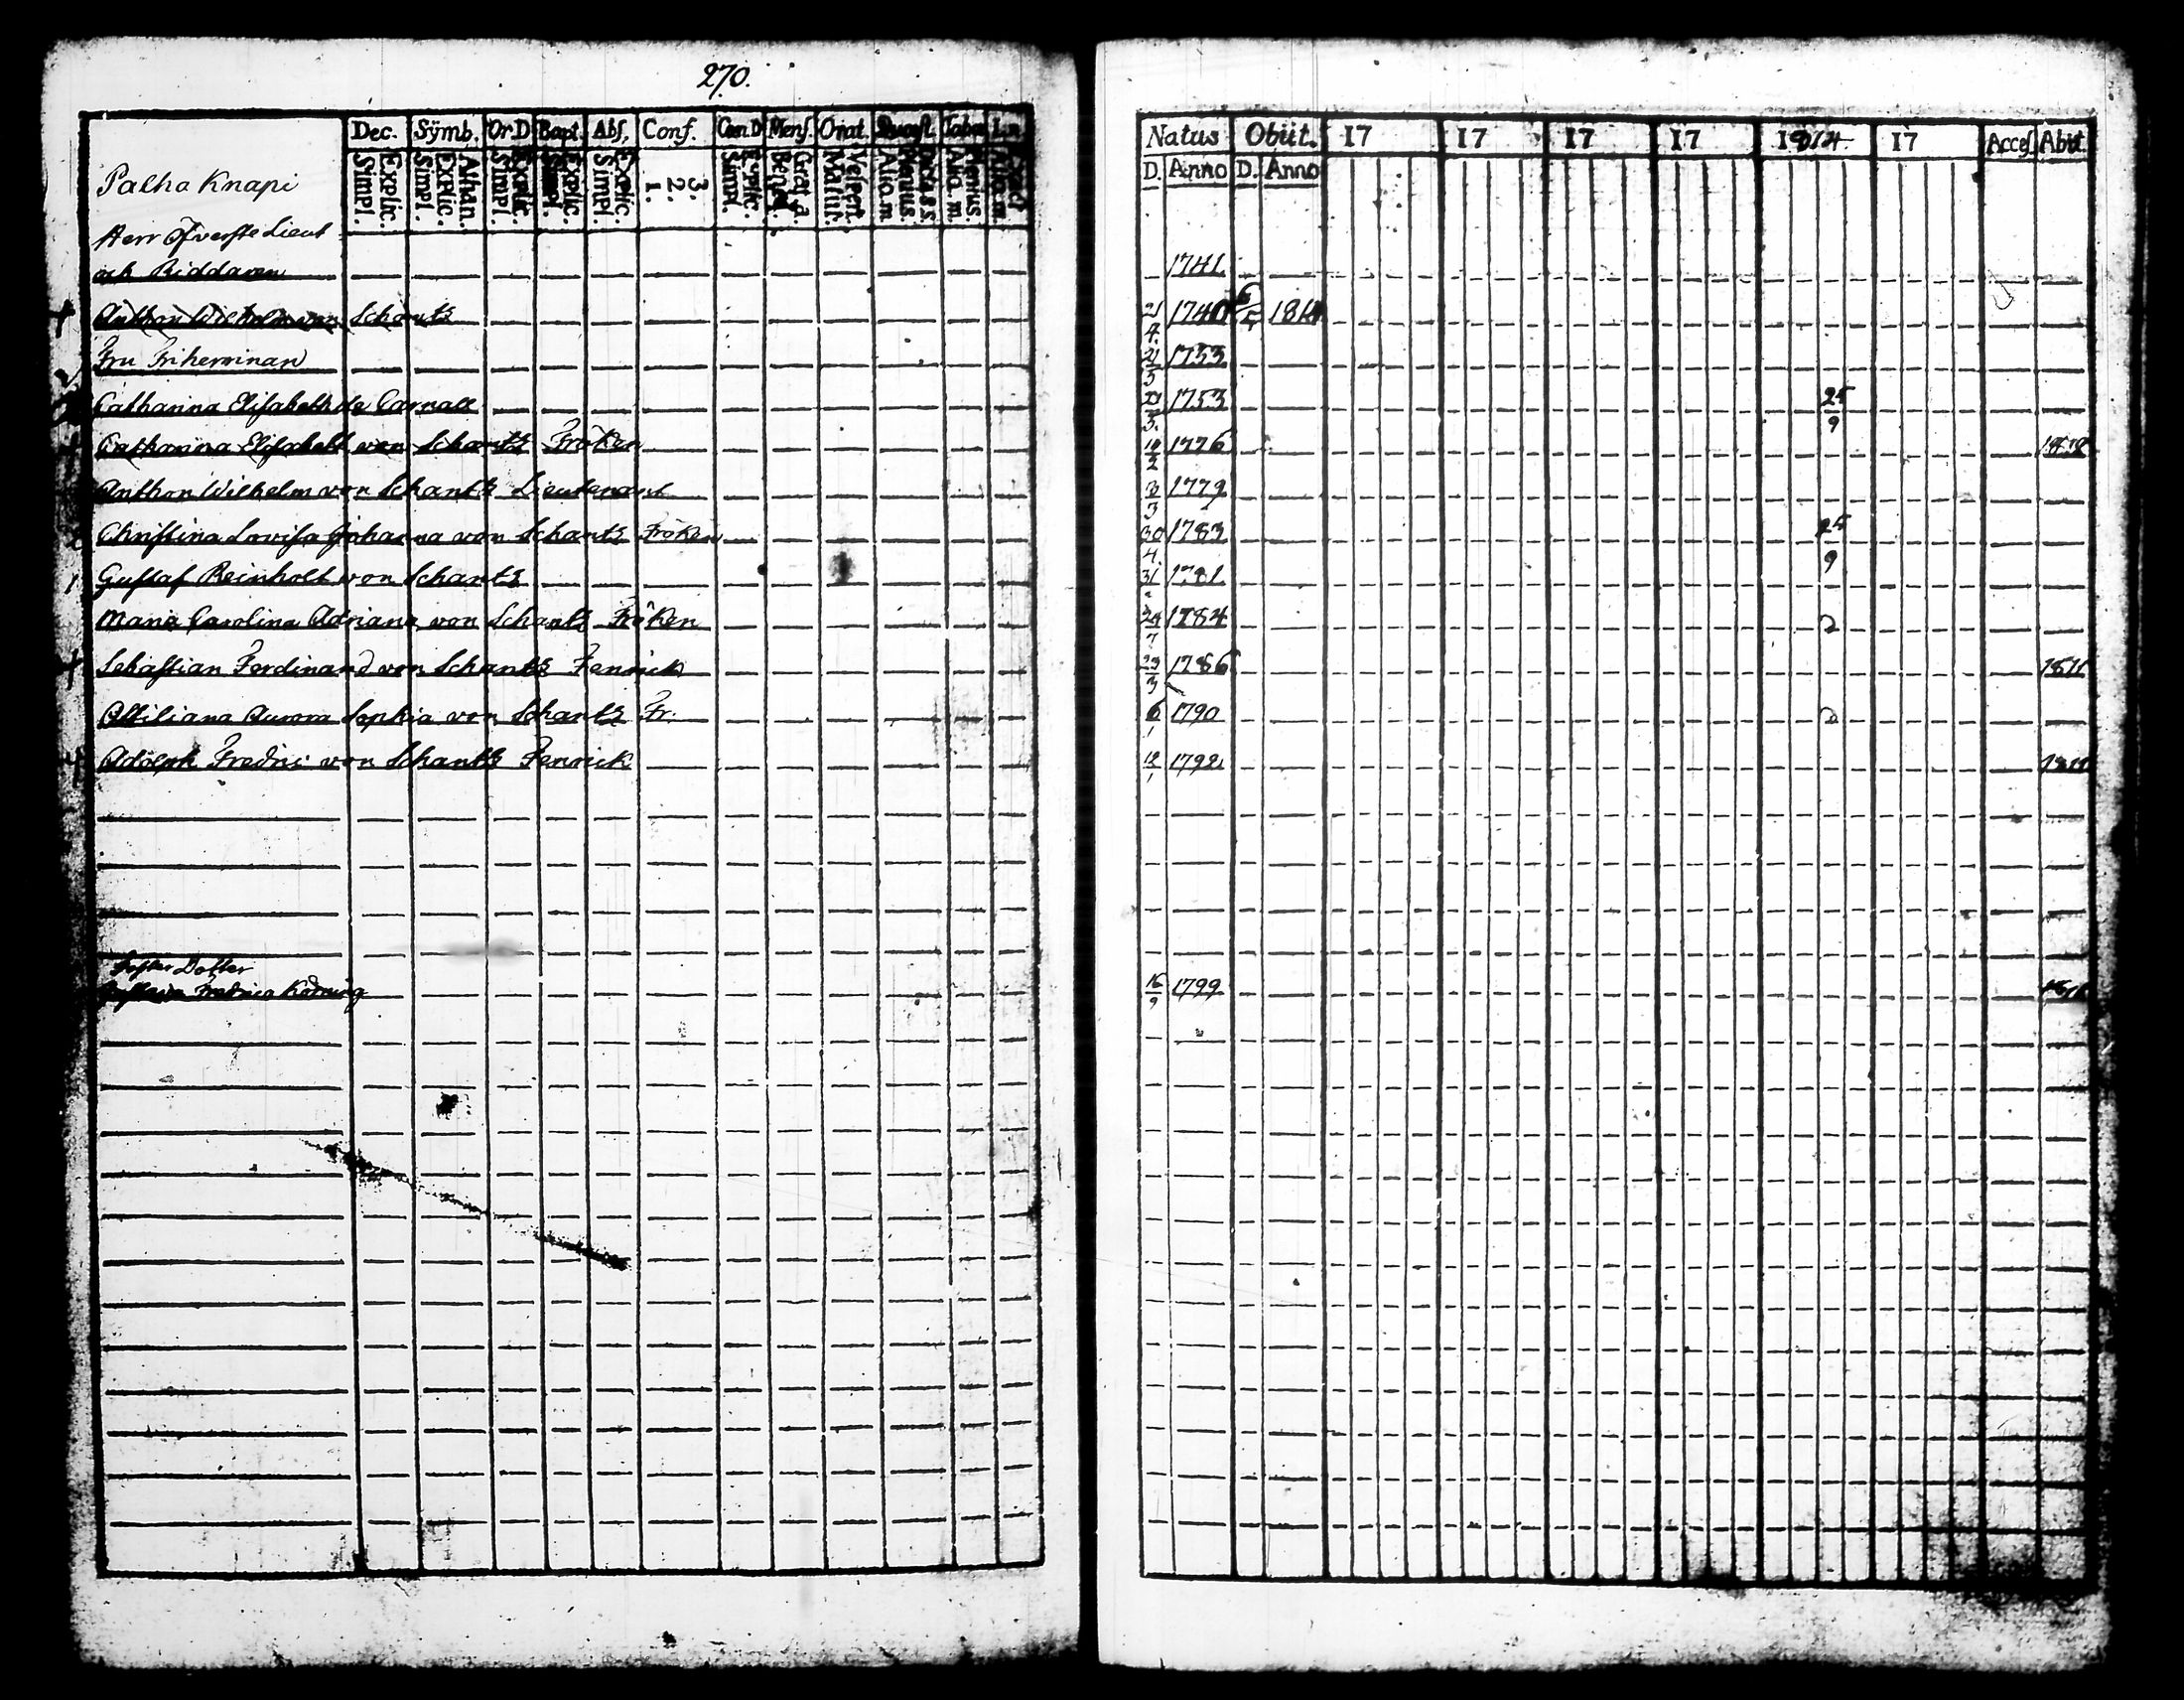 270.
Dec. Symb. Or.D Bapt. Abs. Conf. Cœn.D Mens. Orat.
Explic. Simpl. Athan. Explic. Simpl. Explic. Simpl. Explic. Simpl. Explic. Simpl. 3. 2. 1. Explic. Simpl. Grat.a. Bened. Vespert. Matut.
Palha Knapi
Herr Öfverste Lieut
och Riddaren
Anthon Wilhelm von Schantz
Fru Friherrinan
Catharina Elisabeth de Carnall
Catharina Elisabeth von Schantz Fröken
Anthon Wilhelm von Schantz Lieutenant
Christina Lovisa Johanna von Schantz Fröken
Gustaf Reinholt von Schantz
Maria Carolina Adriana von Schantz Fröken
Sebastian Ferdinand von Schantz Fenrick
Ottiliana Aurora Sophia von Schantz Fr.
Adolph Fredric von Schantz Fenrick
Syster Dotter
Fredrica
Natus Obiit. 17 17 17 17 1814 17 Acces. Abiit
D. Anno D. Anno
1741
21/4 1740 6/5
21/5 1753
21/5 1753 25/9
1776
3/3 1779
30/4 1783 25/9
31 1781
24/7 1784 2
23/3 1786
6/1 1790 2
12/1 1792
16/9 1799